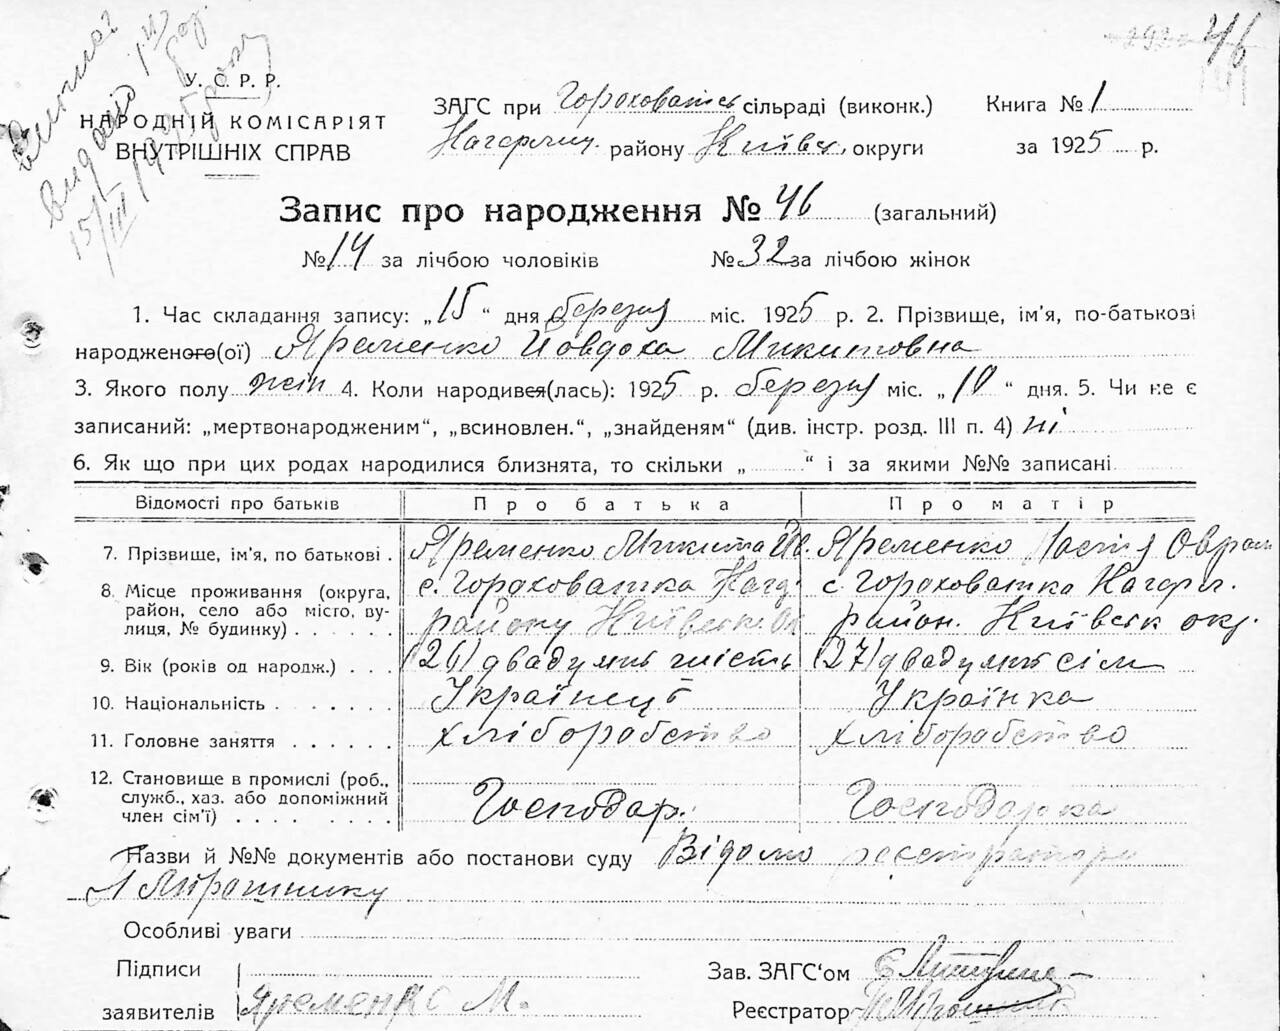 46
У. С. Р. Р.
НАРОДНІЙ КОМІСАРІЯТ
ВНУТРІШНІХ СПРАВ
ЗАГС при Гороховатсь сільраді (виконк.)
Книга № 1
Кагарлиц. району Київсь. округи
за 1925 р.
Запис про народження № 46 (загальний)
№ 14 за лічбою чоловіків № 32 за лічбою жінок
1. Час складання запису: „15“ дня березня міс. 1925 р. 2. Прізвище, ім'я, по-батькові
народженого(ої) Яременко Йовдоха Микитовна
3. Якого полу жін 4. Коли народився(лась): 1925 р. березня міс. „10“ дня. 5. Чи не є
записаний: „мертвонародженим“, „всиновлен.“, „знайденям“ (див. інстр. розд. III п. 4) ні
6. Як що при цих родах народилися близнята, то скільки „ “ і за якими №№ записані
Відомості про батьків Про батька Про матір
7. Прізвище, ім'я, по батькові . Яременко Микита Яременко Настя Оврам
8. Місце проживання (округа, район, село або місто, вулиця, № будинку) . . . . . .
с. Гороховатка Кагар.
району Київськ. Ок
с. Гороховатка Кагарл.
район. Київськ окр.
9. Вік (років од народж.) . . . (26) двадцять шість (27) двадцять сім
10. Національність . . . . . . . Українець Українка
11. Головне заняття . . . . . . хліборобство хліборобство
12. Становище в промислі (роб., служб., хаз. або допоміжний член сім'ї) . . . . . . Господар. Господарка
Назви й №№ документів або постанови суду Відомо реєстратору
Мірошнику
Особливі уваги
Підписи
заявителів Яременко М.
Зав. ЗАГС‘ом
Реєстратор